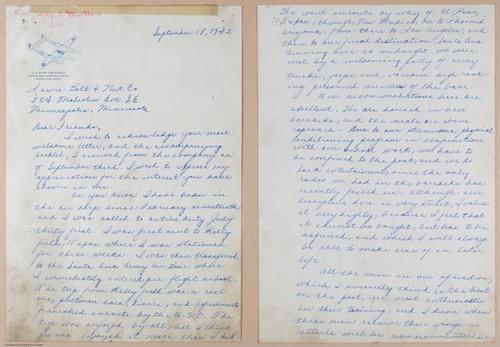 September 18, 1942
U. S. ARMY AIR FORCES
Lewis Bolt & Nut Co.
504 Malcolm Ave. S.E.
Minneapolis, Minnesota
Dear Friends,
I wish to acknowledge your most
welcome letter, and the accompanying
booklet, I received from the company on
September third. I wish to express my
appreciation for the interest you have
shown in me.
As you know I have been in
the air corps since February seventeenth
and I was called to active duty July
thirty first. I was first sent to Kelley
Field, Texas where I was stationed
for three weeks. I was then transferred
to the Santa Ana Army Air Base where
I immediately entered pre flight school.
The trip from Kelley Field was a
one, pullman cars, diners, and refreshments
furnished enroute by the U.S.O. The
trip was enjoyed by all, but I think
no one enjoyed it more than I did.
We went enroute by way of El Paso,
Texas, through New Mexico, on to Phoenix
Arizona, from there to Los Angeles, and
then to our final destination, Santa Ana.
Arriving here at midnight we were
met by a welcoming party of army
trucks, jeeps and various high rank
ing personnel members of the base.
Our accommodations here are
excellent. We are housed in new
barracks, and the meals are above
reproach. Due to our strenuous physical
conditioning program in conjunction
with our school work, we have to
be confined to the post, and we do
lack entertainment, since the only
radio we had in the barracks has
recently broken down. Although our
discipline here is very strict, I value
it very highly, because I feel that
it cannot be bought, but has to be
acquired, and which I will always
be able to make use of in later
life.
All the men in our squadron,
which I sincerely think is the best
on the post, are most enthusiastic
in their training, and I know when
these men receive their wings as